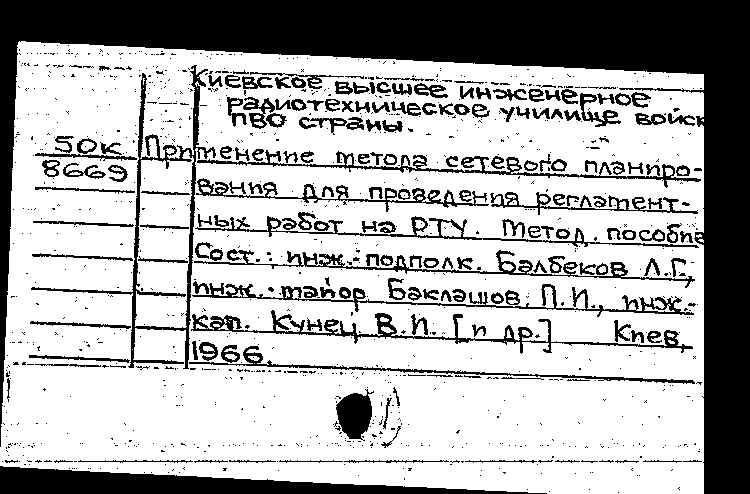 Киевское высшее инженерное
радиотехническое училище войск
ПВО страны.
50к Применение метода сетевого планиро-
8669 вания для проведения регламент-
ных работ на РТУ. Метод. пособие
Сост.: инж.-подполк. Балбеков Л.Г.,
инж.-майор Баклашов П.И., инж.-
кап. Кунец В.И. [и др.] Киев,
1966.